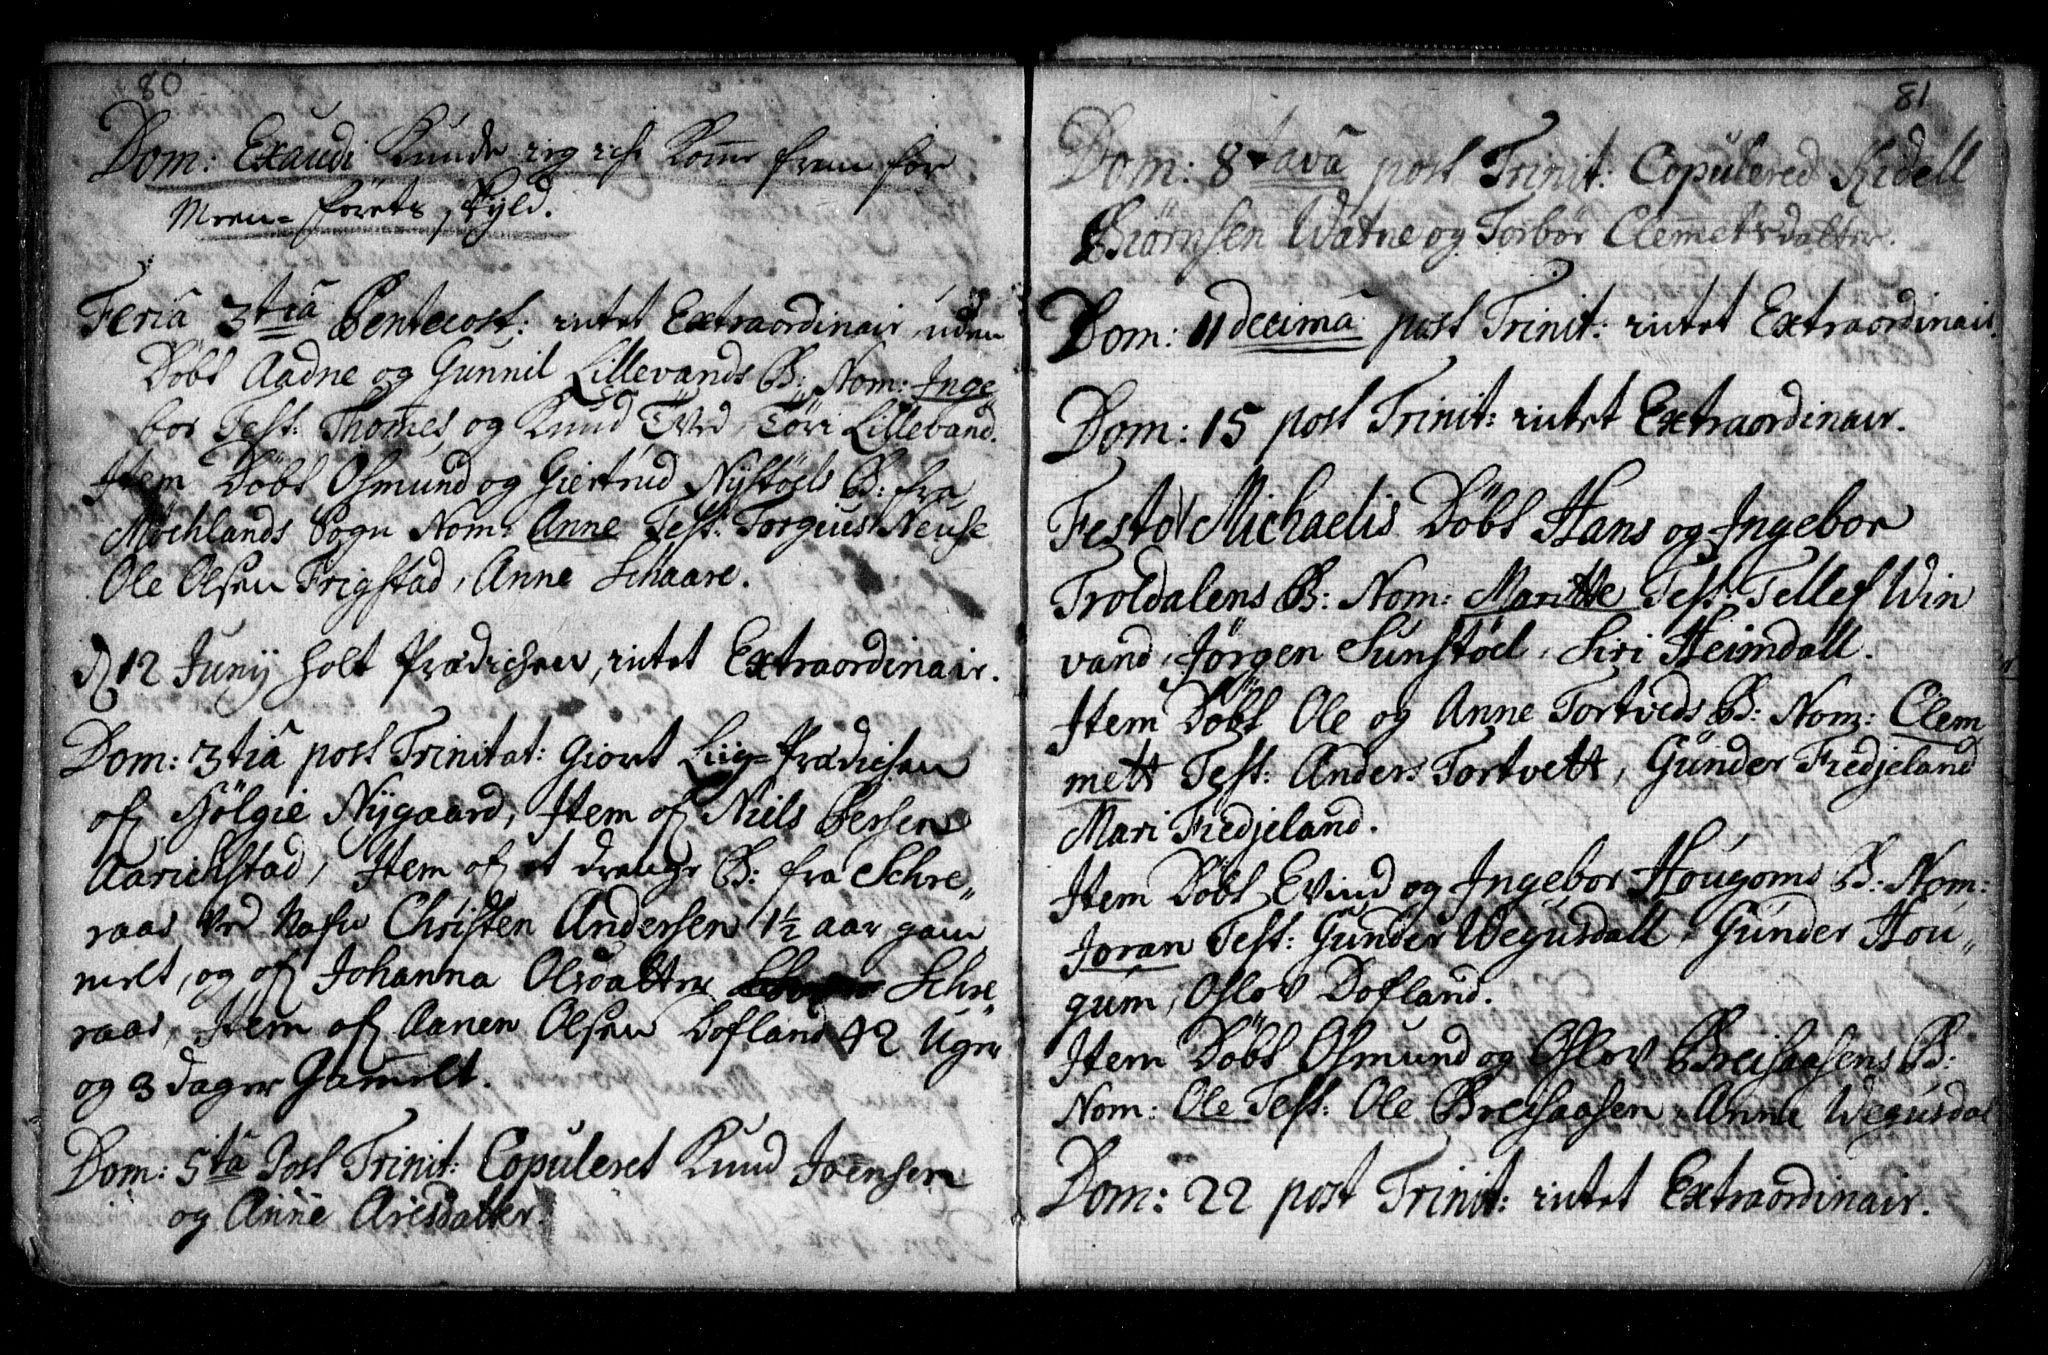 80
Dom: Exaudi Kunde jeg icke komme frem for
Meen-förets skyld.
Feriâ 3tiâ Pentecost: intet Extraordinair, uden
Döbt Aadne og Gunnil Lillevands B: Nom: Inge
bor Test: Thomes og Knud Tved, Töri Lillevand.
Item Döbt Osmund og Giertrud Nystöels B: fra
Mochlands Sogn Nom: Anne Test: Torgius Neuse
Ole Olsen Frigstad, Anne Schaare.
d 12 Junij holt Prædichen, intet Extraordinair.
Dom: 3tiâ post Trinitat: giort Liig-Prædichen
of Hölgie Nygaard, Item of Niels Persen
Aarichstad, Item of et drenge B: fra Schre-
raas ved Nafn Christen Andersen 1½ aar gam
melt, og of Johanna Olsdatter Schre-
raas, Item of Aanen Olsen Dofland 42 Uger
og 3 dager Gamelt.
Dom: 5tâ Post Trinit: Copuleret Knud Joensen
og Anne Aresdatter.
81
Dom: 8tavâ post Trinit: Copulered Kidell
Biörnsen Watne og Torbör Clemetsdatter.
Dom: 11decima post Trinit: intet Extraordinair.
Dom: 15 post Trinit: intet Extraordinair.
Festo Michaelis Döbt Hans og Ingebor
Troldalens B: Nom: Maritte Test: Tellef Win
vand, Jörgen Sunstöel, Siri Heimdall.
Item Döbt Ole og Anne Tortveds B: Nom: Clem
mett Test: Anders Tortvett, Gunder Fredjeland
Mari Fredjeland.
Item Döbt Evind og Ingebor Hougoms B: Nom:
Joran Test: Gunder Wegusdall, Gunder Hou-
gum, Oslov Dofland.
Item Döbt Osmund og Oslov Breisaasens B:
Nom: Ole Test: Ole Breisaasen, Anne Wegusdal
Dom: 22 post Trinit: intet Extraordinair.